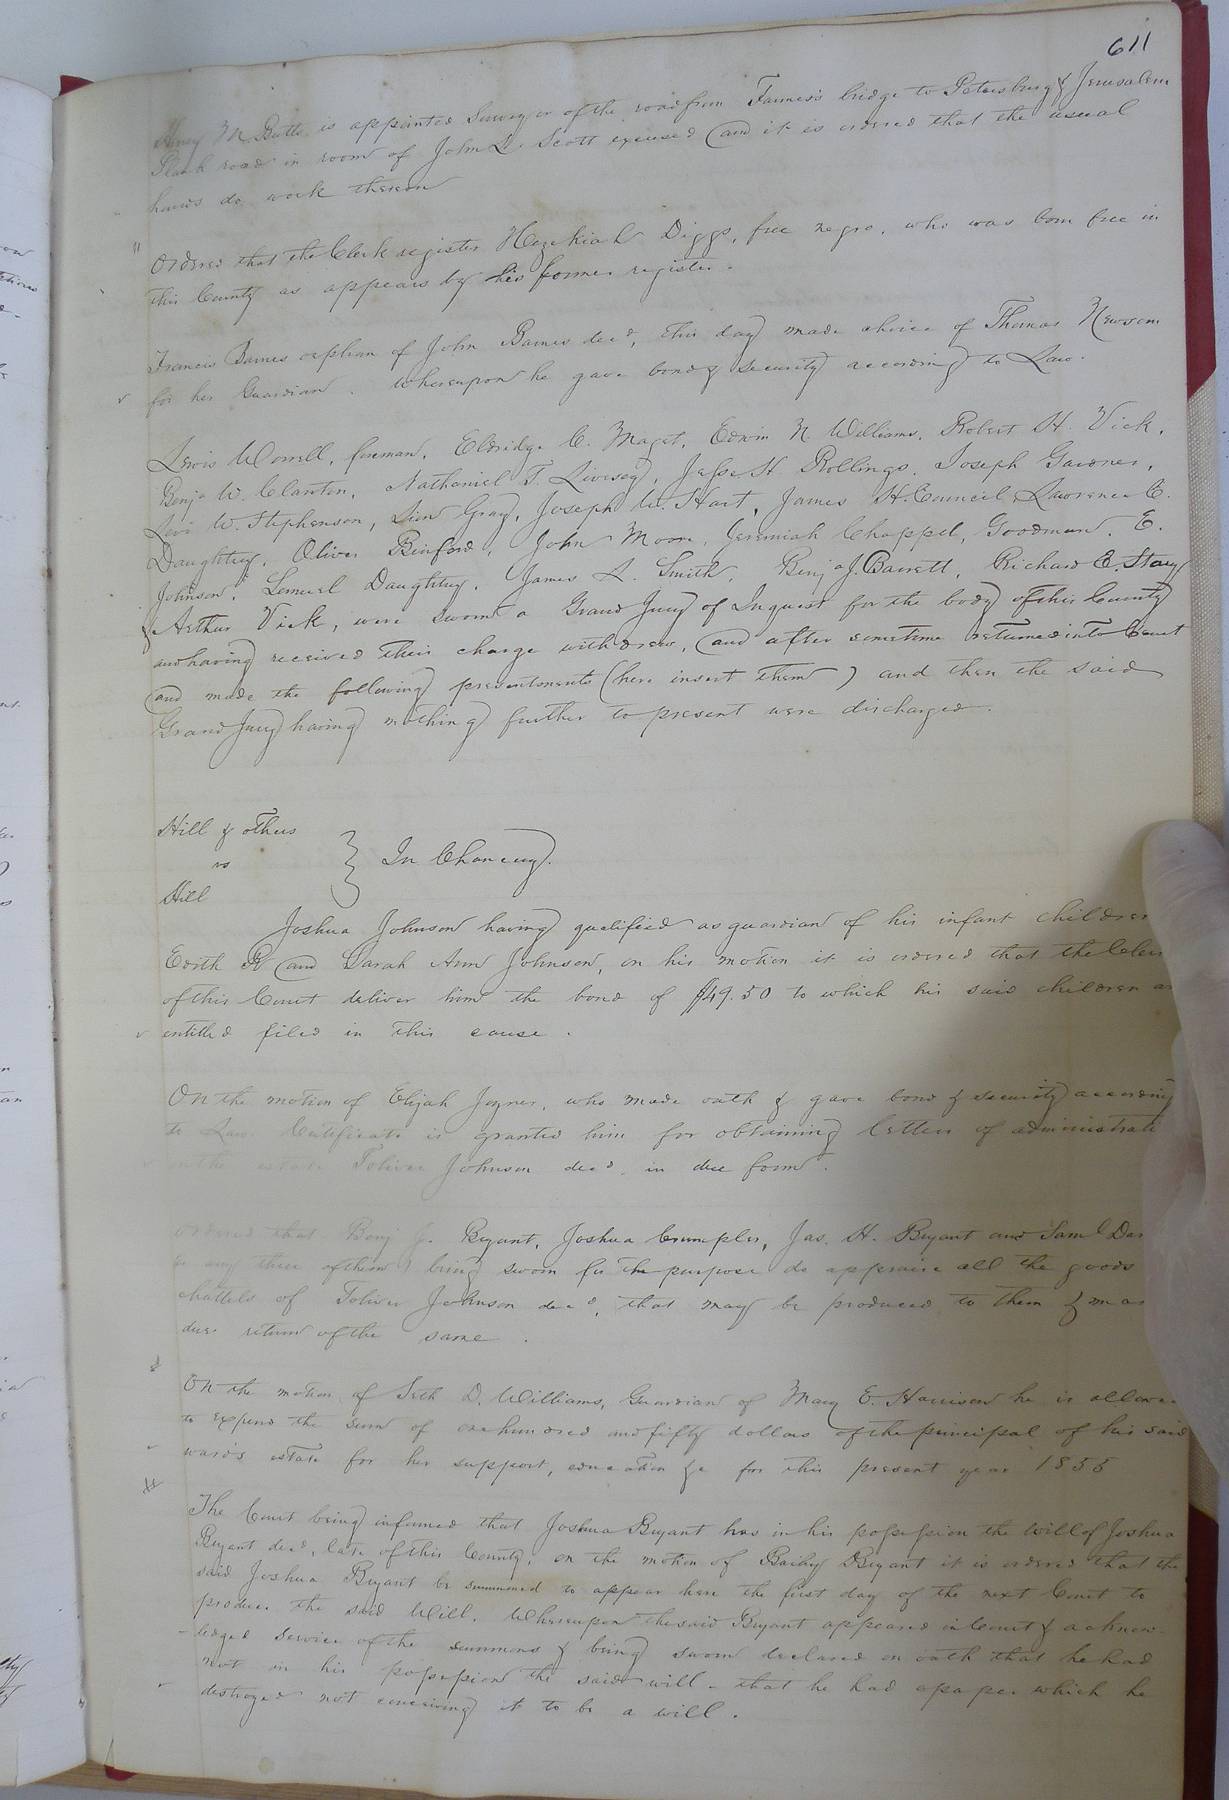 611
Henry M. Butts is appointed Surveyor of the road from Farmer's bridge to Petersburg & Jerusalem
Plank road in room of John L. Scott excused and it is ordered that the usual
hands do work thereon
Ordered that the Clerk register Hezekiah Diggs, free negro, who was born free in
this County as appears by his former register.
Francis Barnes orphan of John Barnes decd, this day made choice of Thomas Newsom
for her Guardian. Whereupon he gave bond & security according to Law.
Lewis Worrell, foreman, Eldridge C. Maget, Edwin N. Williams, Robert H. Vick,
Benja W. Claxton, Nathaniel T. Livesey, Jesse H. Rollings, Joseph Gardner,
Levi W. Stephenson, Gray, Joseph W. Hart, James H. Council, Lawrence C.
Daughtrey, Oliver Binford, John Moore, Jeremiah Chappel, Goodman, E.
Johnson, Lemuel Daughtrey, James L. Smith, Benja J. Barrett, Richard E. Stacy
& Arthur Vick, were sworn a Grand Jury of Inquest for the body of this County
and having received their charge withdrew, and after sometime returned into Court
and made the following presentments (here insert them) and then the said
Grand Jury having nothing further to present were discharged.
Hill & others
vs
Hill
In Chancery.
Joshua Johnson having qualified as guardian of his infant children
Edith R and Sarah Ann Johnson, on his motion it is ordered that the Cler
of this Court deliver him the bond of $49.50 to which his said children a
entitled filed in this cause.
On the motion of Elijah Joyner, who made oath & gave bond & security according
to Law. Certificate is granted him for obtaining letters of administrati
on the estate Toliver Johnson decd, in due form.
Ordered that Benj J. Bryant, Joshua Crumpler, Jas. H. Bryant and Saml Dar
or any three of them being sworn for the purpose do appraise all the goods
chattels of Toliver Johnson decd, that may be produced to them & ma
due return of the same.
On the motion of Seth D. Williams, Guardian of Mary E. Harrison he is allowed
to expend the sum of one hundred and fifty dollars of the principal of his said
wards estate for her support, education &c for this present year 1855
The Court being informed that Joshua Bryant has in his possession the will of Joshua
Bryant decd, late of this County, on the motion of Bailey Bryant it is ordered that the
said Joshua Bryant be summoned to appear here the first day of the next Court to
produce the said Will. Whereupon the said Bryant appeared in Court & acknow-
-ledged service of the summons & being sworn declared on oath that he had
not in his possession the said will - that he had a paper which he
destroyed not conceiving it to be a will.